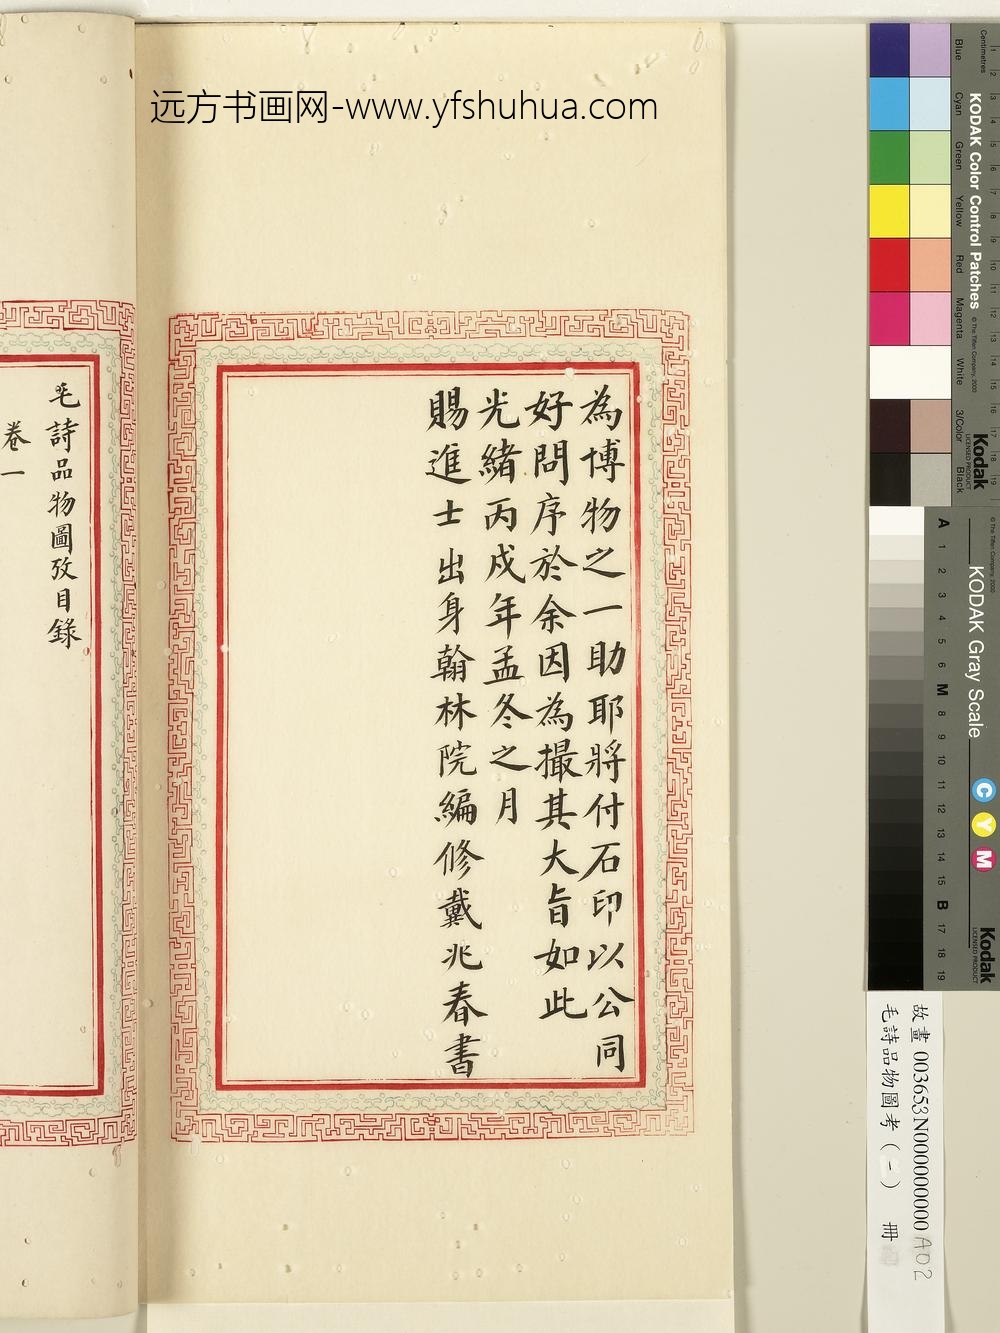 远方书画网-www.yfshuhua.com
為博物之一助耶將付石印以公同
好問序於余因為撮其大旨如此
光緒丙戍年孟冬之月
賜進士出身翰林院編修戴兆春書
毛詩品物圖攷目錄
卷一
Centimetres
KODAK Color Control Patches
© The Tiffen Company, 2000
Kodak
LICENSED PRODUCT
Blue
Cyan
Green
Yellow
Red
Magenta
White
3/Color
Black
KODAK Gray Scale
© The Tiffen Company, 2000
C Y M
Kodak
LICENSED PRODUCT
A 1 2 3 4 5 6 M 8 9 10 11 12 13 14 15 B 17 18 19
故畫 003653N000000000 A02
毛詩品物圖考(一) 冊